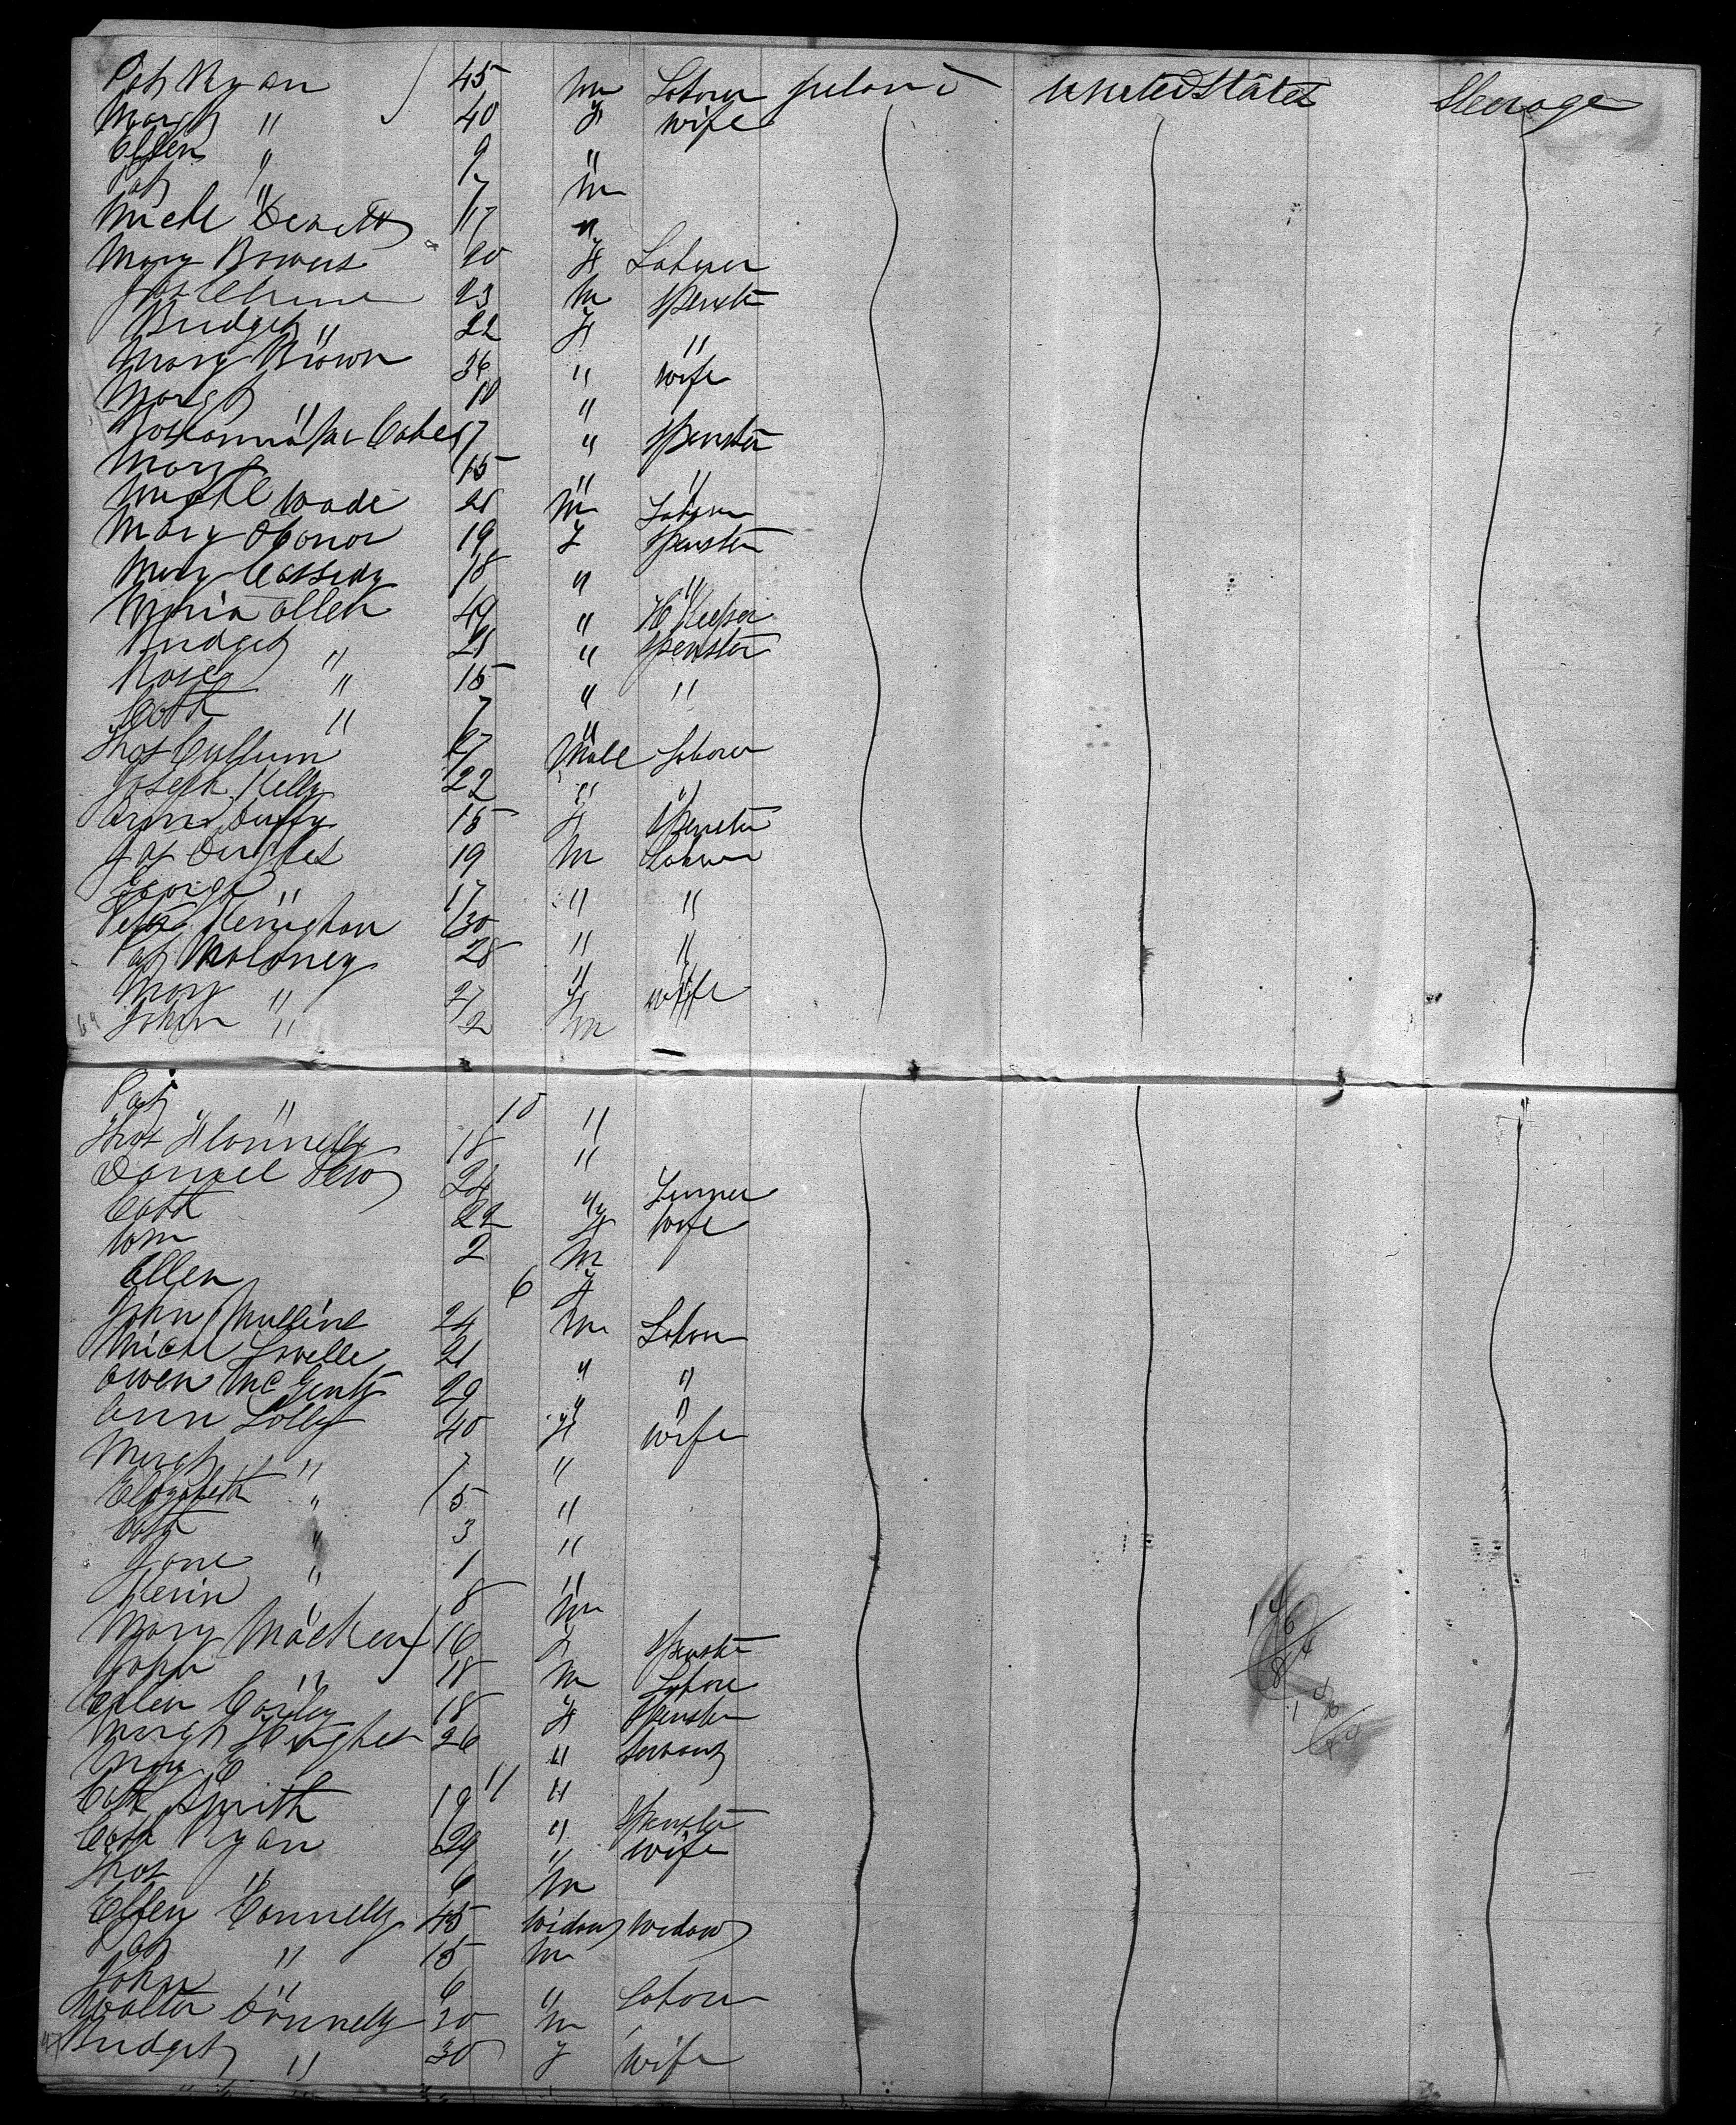 Pat Ryan 45 m Laborer Ireland United States Steerage
Margt " 40 f wife
Ellen " 9 "
Pat " 7 m
Michl 17 "
Mary Bowers 20 f Laborer
Jas 23 m Spinster
Bridget " 22 f "
Mary Brown 36 " wife
Margt " 10 "
Johanna McCabe 17 " Spinster
Mary 15 " "
Michl Wade 21 m Laborer
Mary OConor 19 f Spinster
Mary Cassidy 18 " "
Maria Allen 49 " H Keeper
Bridget " 21 " Spinster
Rose " 15 " "
Cath " 7 "
Thos Cullum 27 Male Laborer
Joseph Kelly 22 " "
Ann Duffy 15 f Spinster
Jas 19 m Laborer
George " 17 " "
Peter Kernighan 30 " "
Pat Moloney 28 "
Mary " 27 f wife
John " 2 m
Pat " 10 "
Thos 18 "
Daniel 24 " Farmer
Cath 22 f wife
Wm 2 m
Ellen 6 f
John Mullins 24 m Labour
Michl Lavelle 21 " "
Owen McGinty 29 " "
Ann Lolly 40 f wife
Margt " 7 "
Elizabeth " 5 "
Cath " 3 "
Jane " 1 "
Kevin " 8 m
Mary Macken 16 f Spinster
John " 18 m Labore
Ellen 18 f Spinster
Margt Hughes 26 " Servant
Mary E 11 "
Cath Smith 19 " Spinster
Cath Ryan 29 " wife
Thos " 6 m
Ellen Connelly 45 Widow Widow
Pat " 15 m
John " 6 " Labour
Walter Connelly 30 m
Bridget " 30 f wife